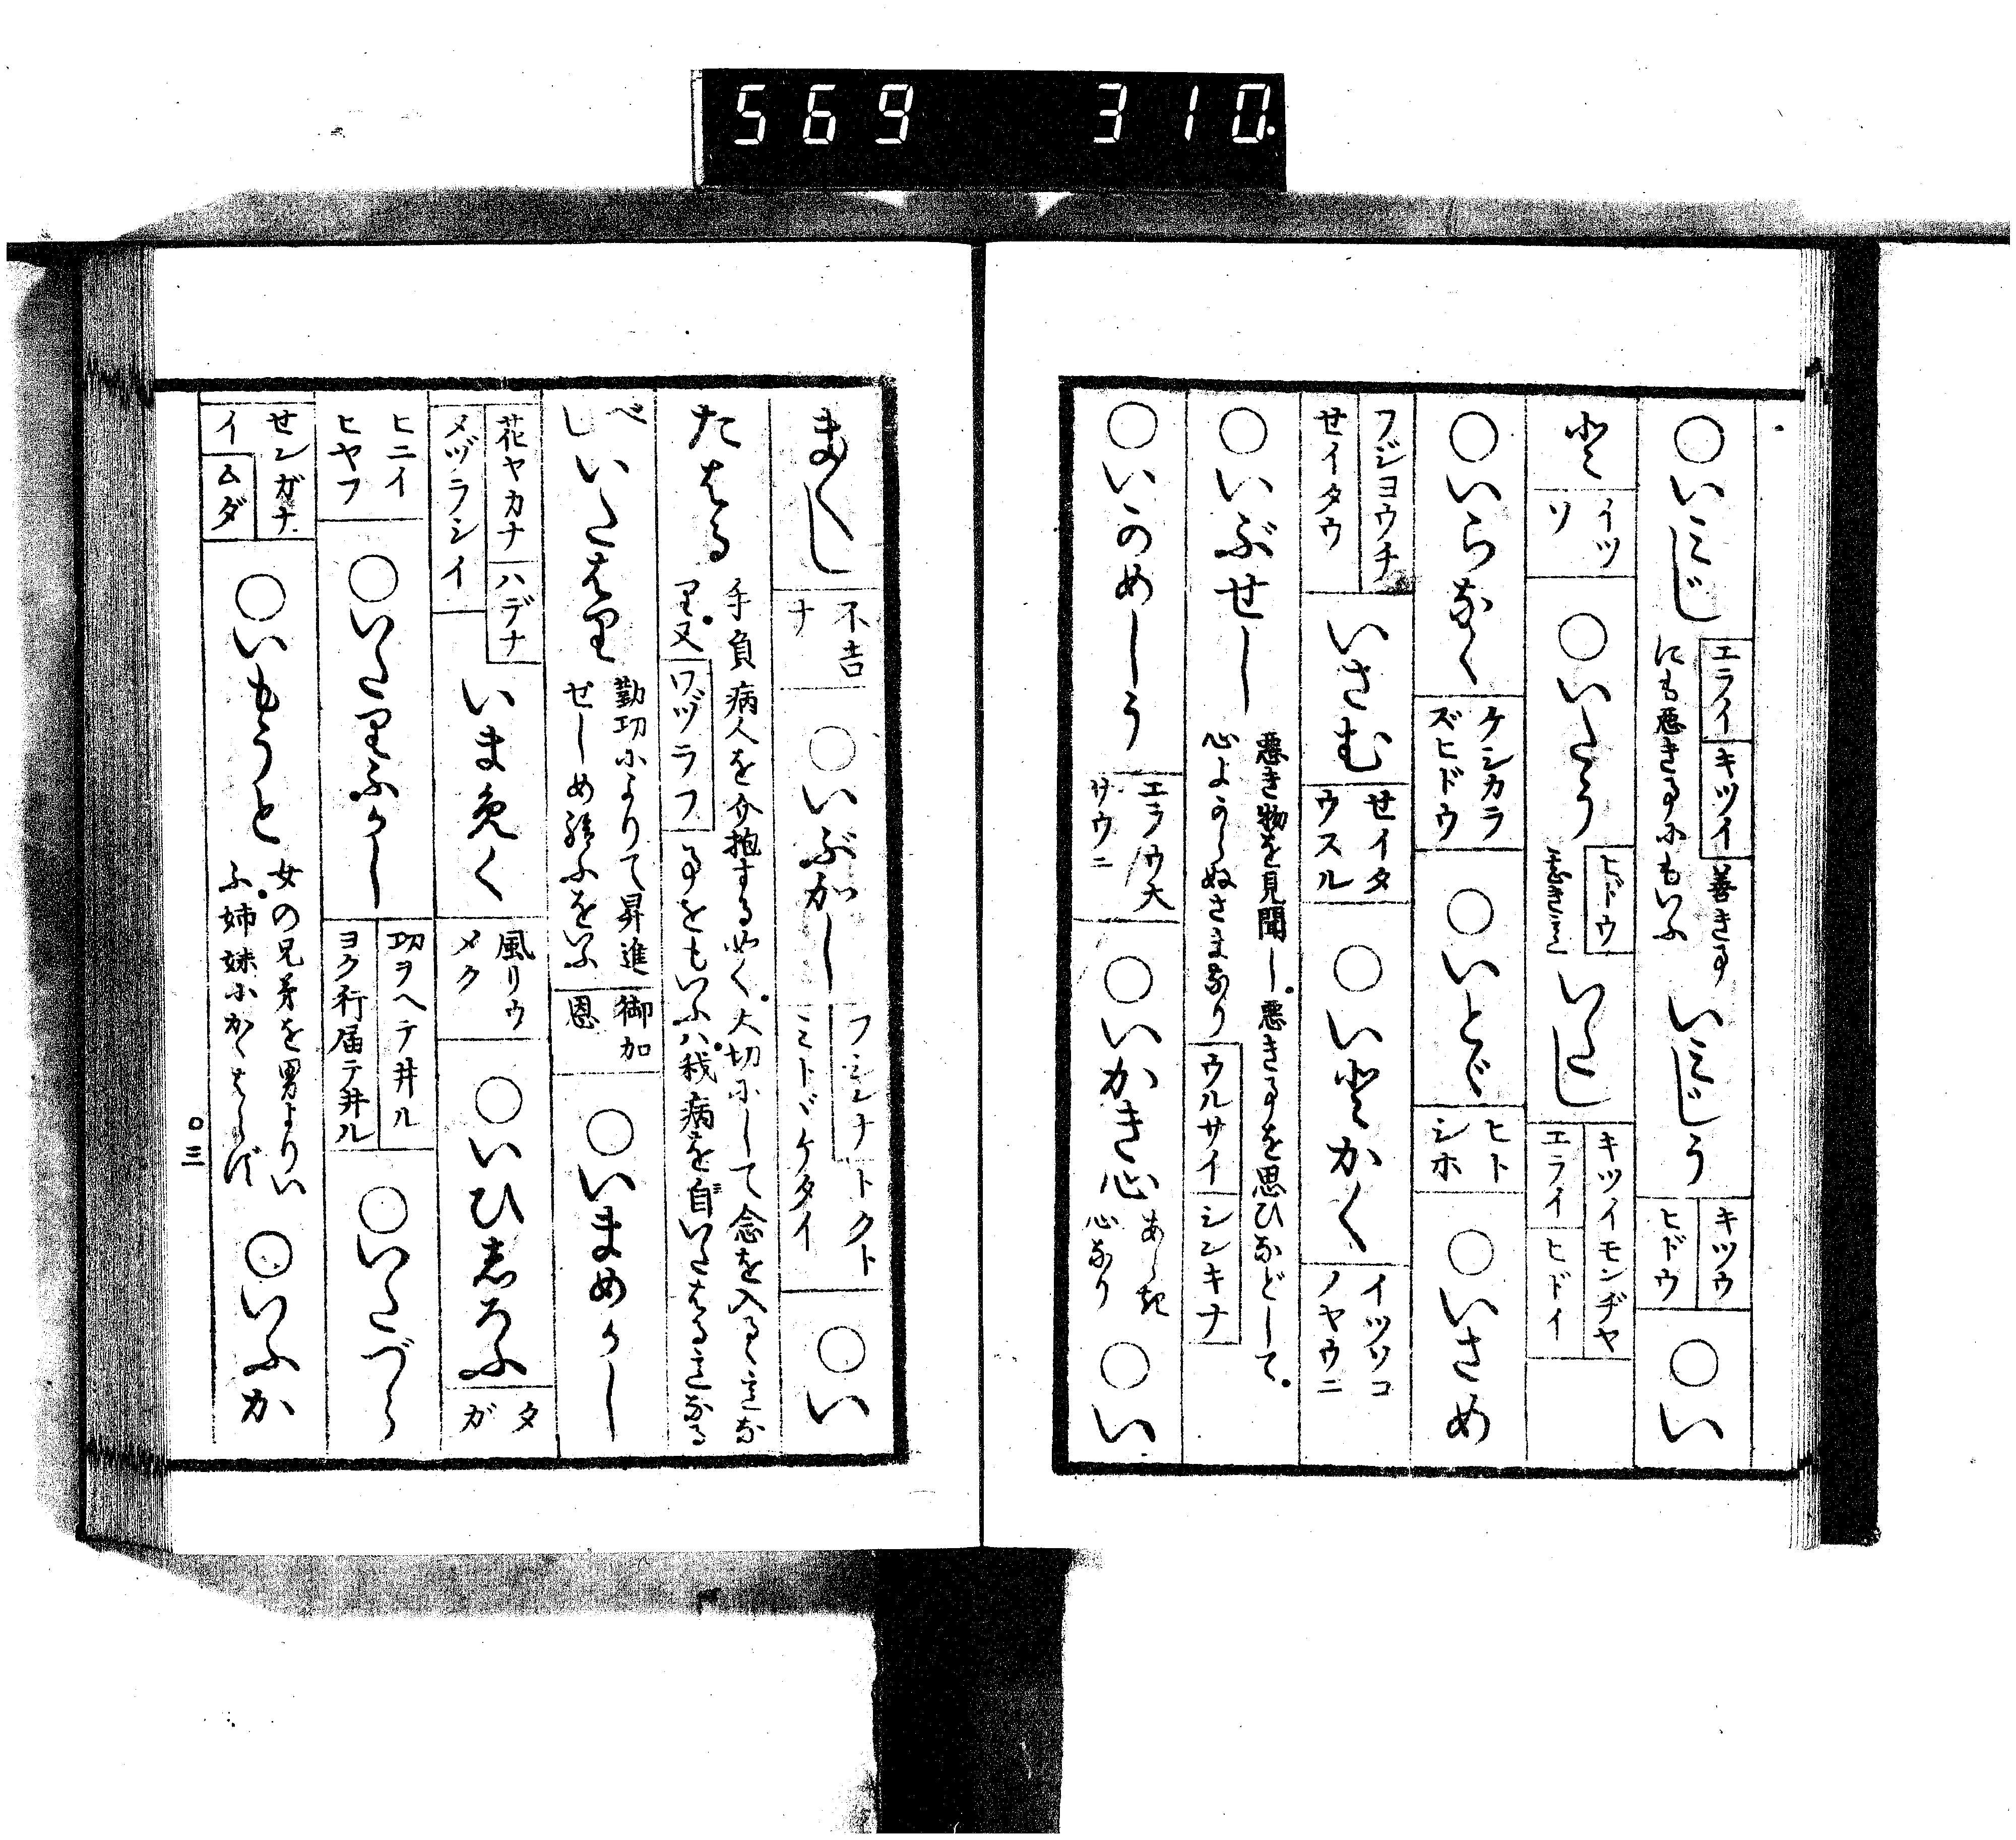 569 310.
○いミじ エライ キツイ 善きる
にも悪き事にもいふ いミじう キツウ ヒドウ ○い
とゞ イツソ ○いたう ヒドウ いたし キツイモンヂヤ エライ ヒドイ
○いらなく ケシカラズヒドウ ○いとゞ ヒトシホ ○いさめ
フジヨウチ せイタウ いさむ せイタウスル ○いとかく イツソコノヤウニ
○いぶせし 悪き物を見聞し。悪き事を思ひなどして。
心よからぬさまなり ウルサイ シンキナ
○いかめしう エラウ大サウニ ○いかき心 あらき心なり ○い
まし 不吉ナ ○いぶかし フシンナ トクトミトヾケタイ ○い
たはる 手負病人を介抱する如く。大切にして念を入るゝ意な
り。又 ワヅラフ 事をもいふハ。我病を自いたはる意なる
べし いたはり 勤功によりて昇進せしめ給ふをいふ 御加恩 ○いまめかし
花ヤカナ ハデナ メヅラシイ いま免く 風リウメク ○いひ志ろふ タガ
ヒニイヒヤフ ○いたりふかし 功ヲヘテ井ル ヨク行届テ井ル ○いたづら
せンガナイ ムダ ○いもうと 女の兄弟を男よりい
ふ。姉妹にかゝはらず ○いふか
ロ三